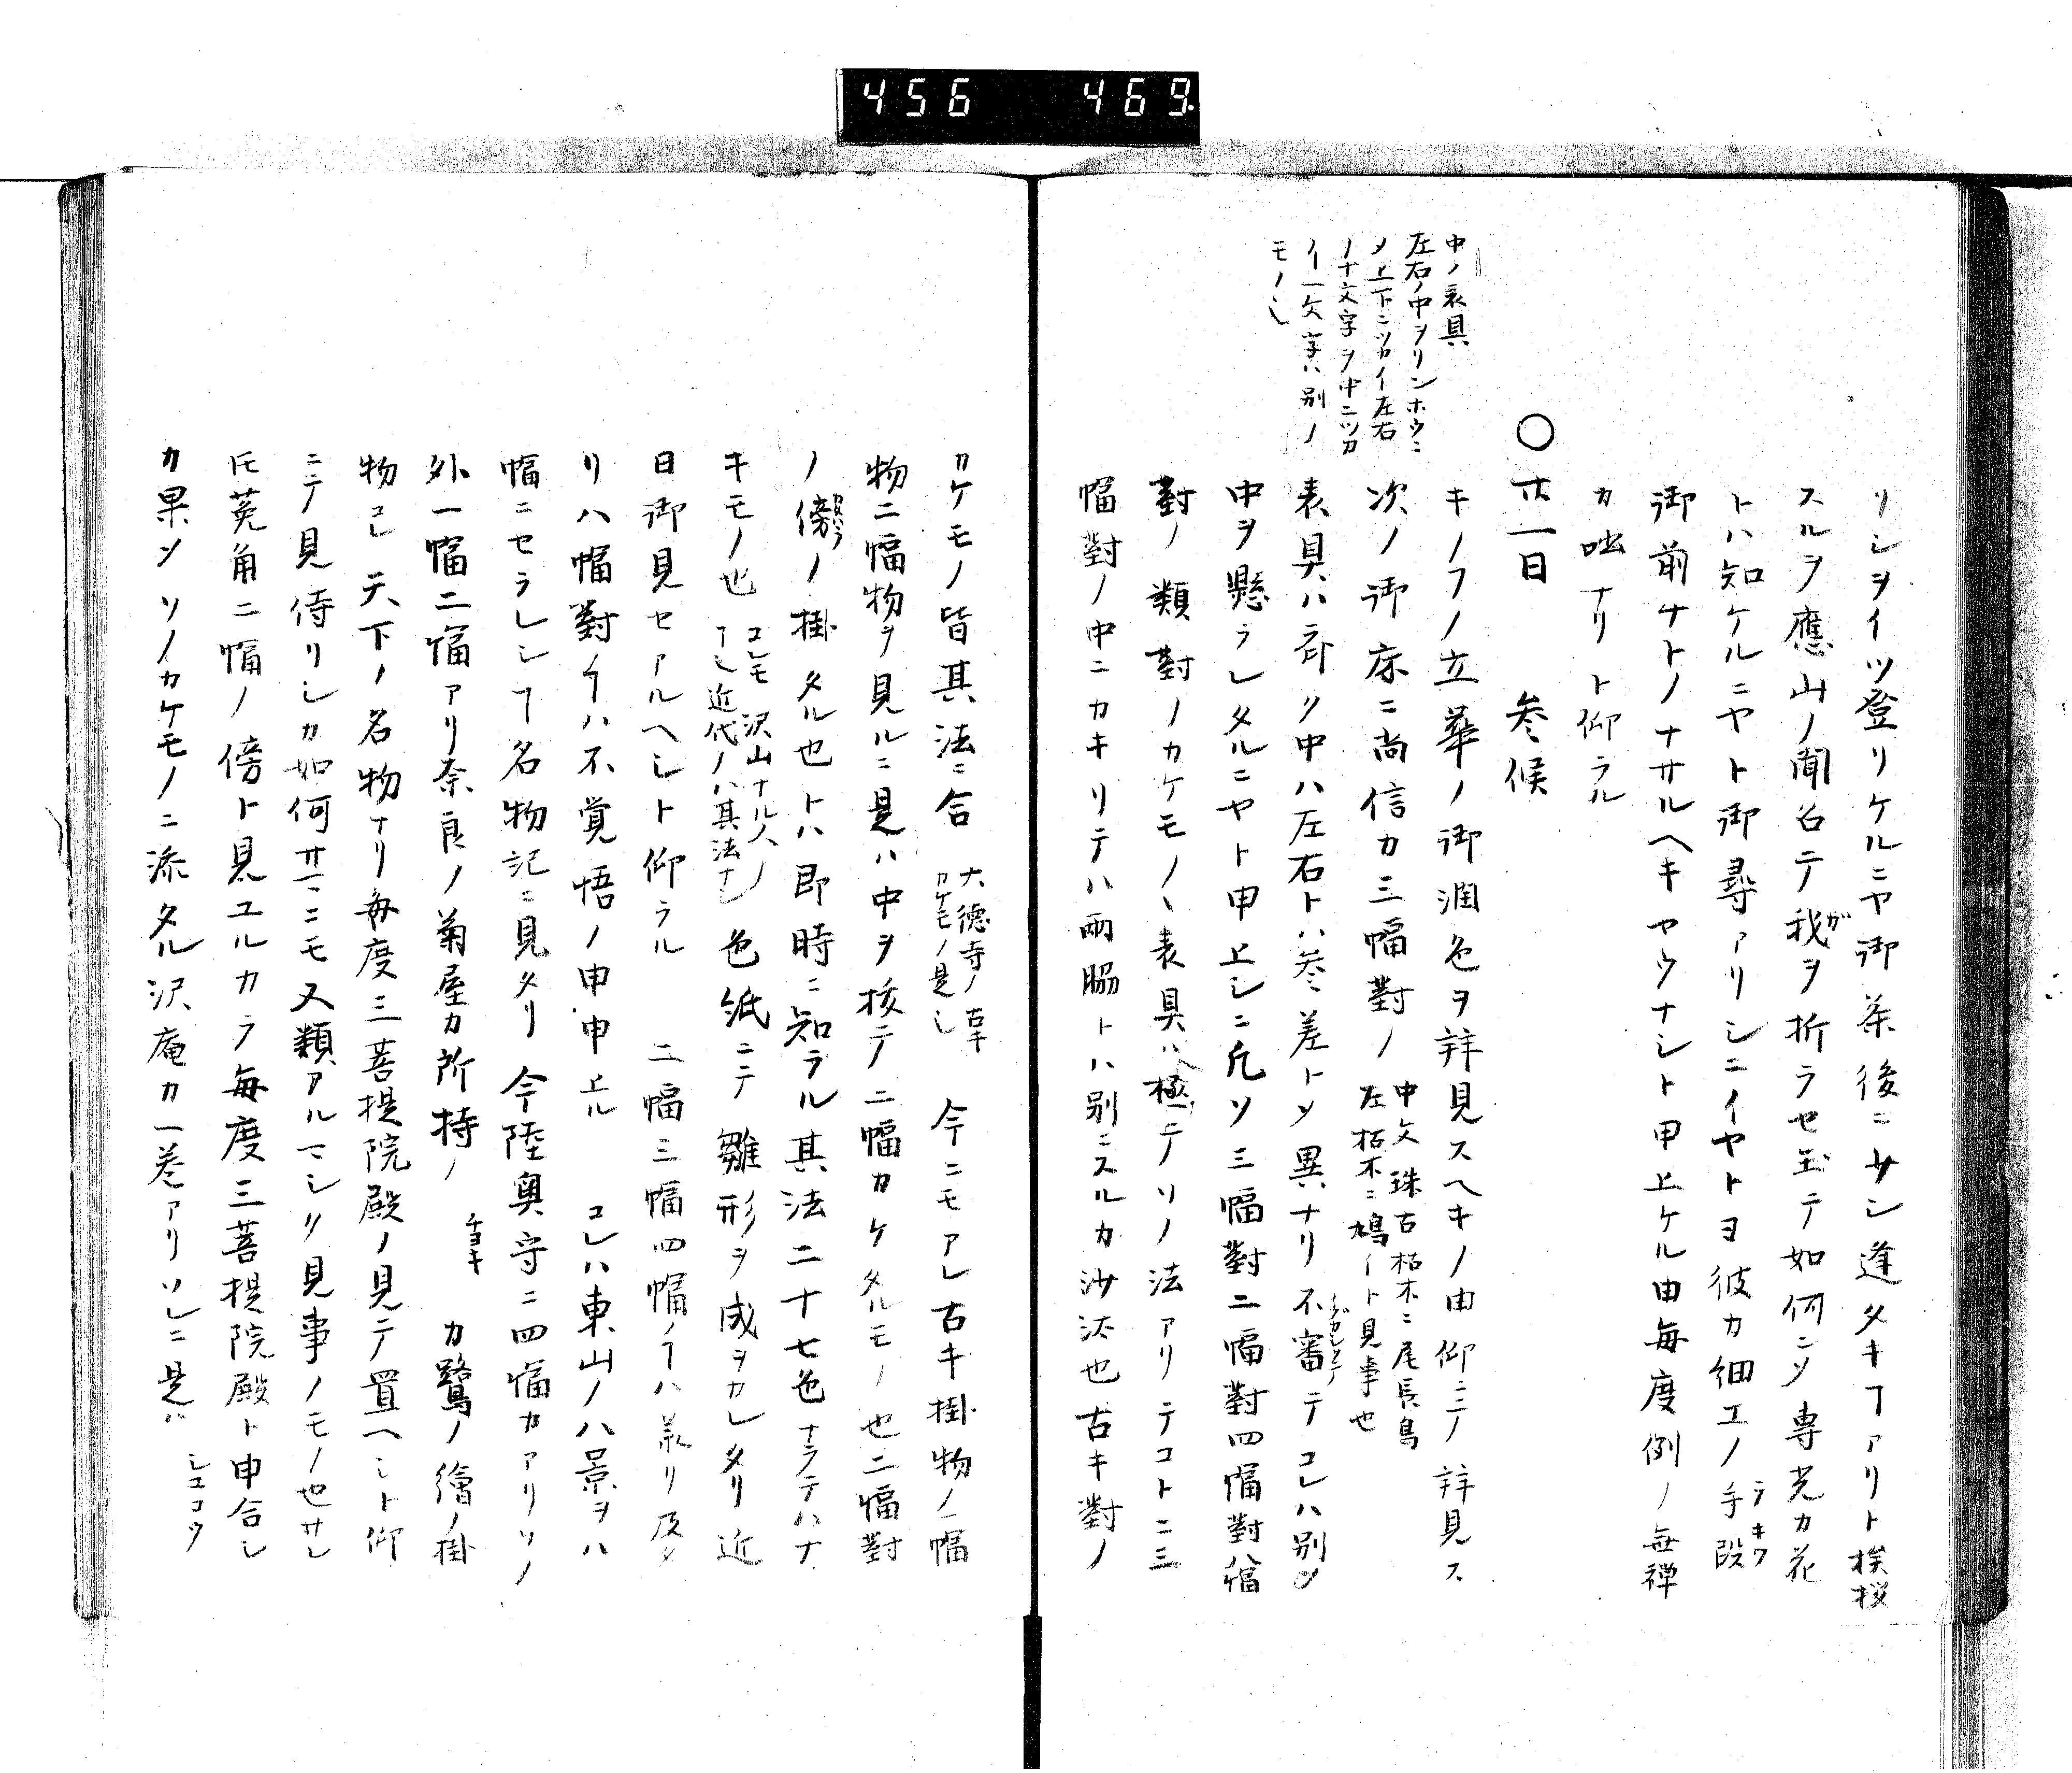 456 469
リシヲイツ登リケルニヤ御茶後ニサシ逢タキヿアリト挨拶
スルヲ應山ノ聞召テ我ヲ折ラセ玉テ如何ニソ専光カ花
トハ知ケルニヤト御尋アリシニイヤトヨ彼カ細工ノ手段
御前ナトノナサルヘキヤウナシト申上ケル由毎度例ノ無禅
カ咄ナリト仰ラル
〇廿一日 参候
中ノ表具
左右ノ中ヲリンホウニ
〆上下ニツカイ左右
ノ十文字ヲ中ニツカ
イ一文字ハ別ノ
モノ也
キノフノ立華ノ御潤色ヲ拝見スヘキノ由仰ニテ拝見ス
次ノ御床ニ尚信カ三幅對ノ 中文珠右枯木ニ尾長鳥
左枯木ニ鳩 見事也
表具ハ奇ク中ハ左右トハ参差トメ異ナリ不審テコレハ別ノ
中ヲ懸ラレタルニヤト申上シニ凡ソ三幅對二幅對四幅對八幅
對ノ類對ノカケモノヽ表具ハ極テソノ法アリテコトニ三
幅對ノ中ニカキリテハ両脇トハ別ニスルカ沙汰也古キ對ノ
カケモノ皆其法ニ合 大徳寺ノ古キ
カケモノ是也 今ニモアレ古キ掛物ノ一幅
物二幅物ヲ見ルニ是ハ中ヲ抜テ二幅カケタルモノ也二幅對
ノ傍ノ掛タル也トハ即時ニ知ラル其法二十七色ナラテハナ
キモノ也 コレモ沢山ナル人ノ
ヿ也近代ノハ其法ナシ 色紙ニテ雛形ヲ成ヲカレタリ近
日御見セアルヘシト仰ラル 二幅三幅四幅ノヿハ承リ及タ
リ八幅對ノヿハ不覚悟ノ由申上ル コレハ東山ノ八景ヲ八
幅ニセラレシヿ名物記ニ見タリ今陸奥守ニ四幅カアリソノ
外一幅二幅アリ奈良ノ菊屋カ所持ノ チヨキ カ鷺ノ繪ノ掛
物コレ天下ノ名物ナリ毎度三菩提院殿ノ見テ置ヘシト仰
ニテ見侍リシカ如何サマニモ又類アルマシク見事ノモノ也サレ
𪜈莵角二幅ノ傍ト見ユルカラ毎度三菩提院殿ト申合シ
カ果シソノカケモノニ添タル沢庵カ一巻アリソレニ是ハ シユコウ